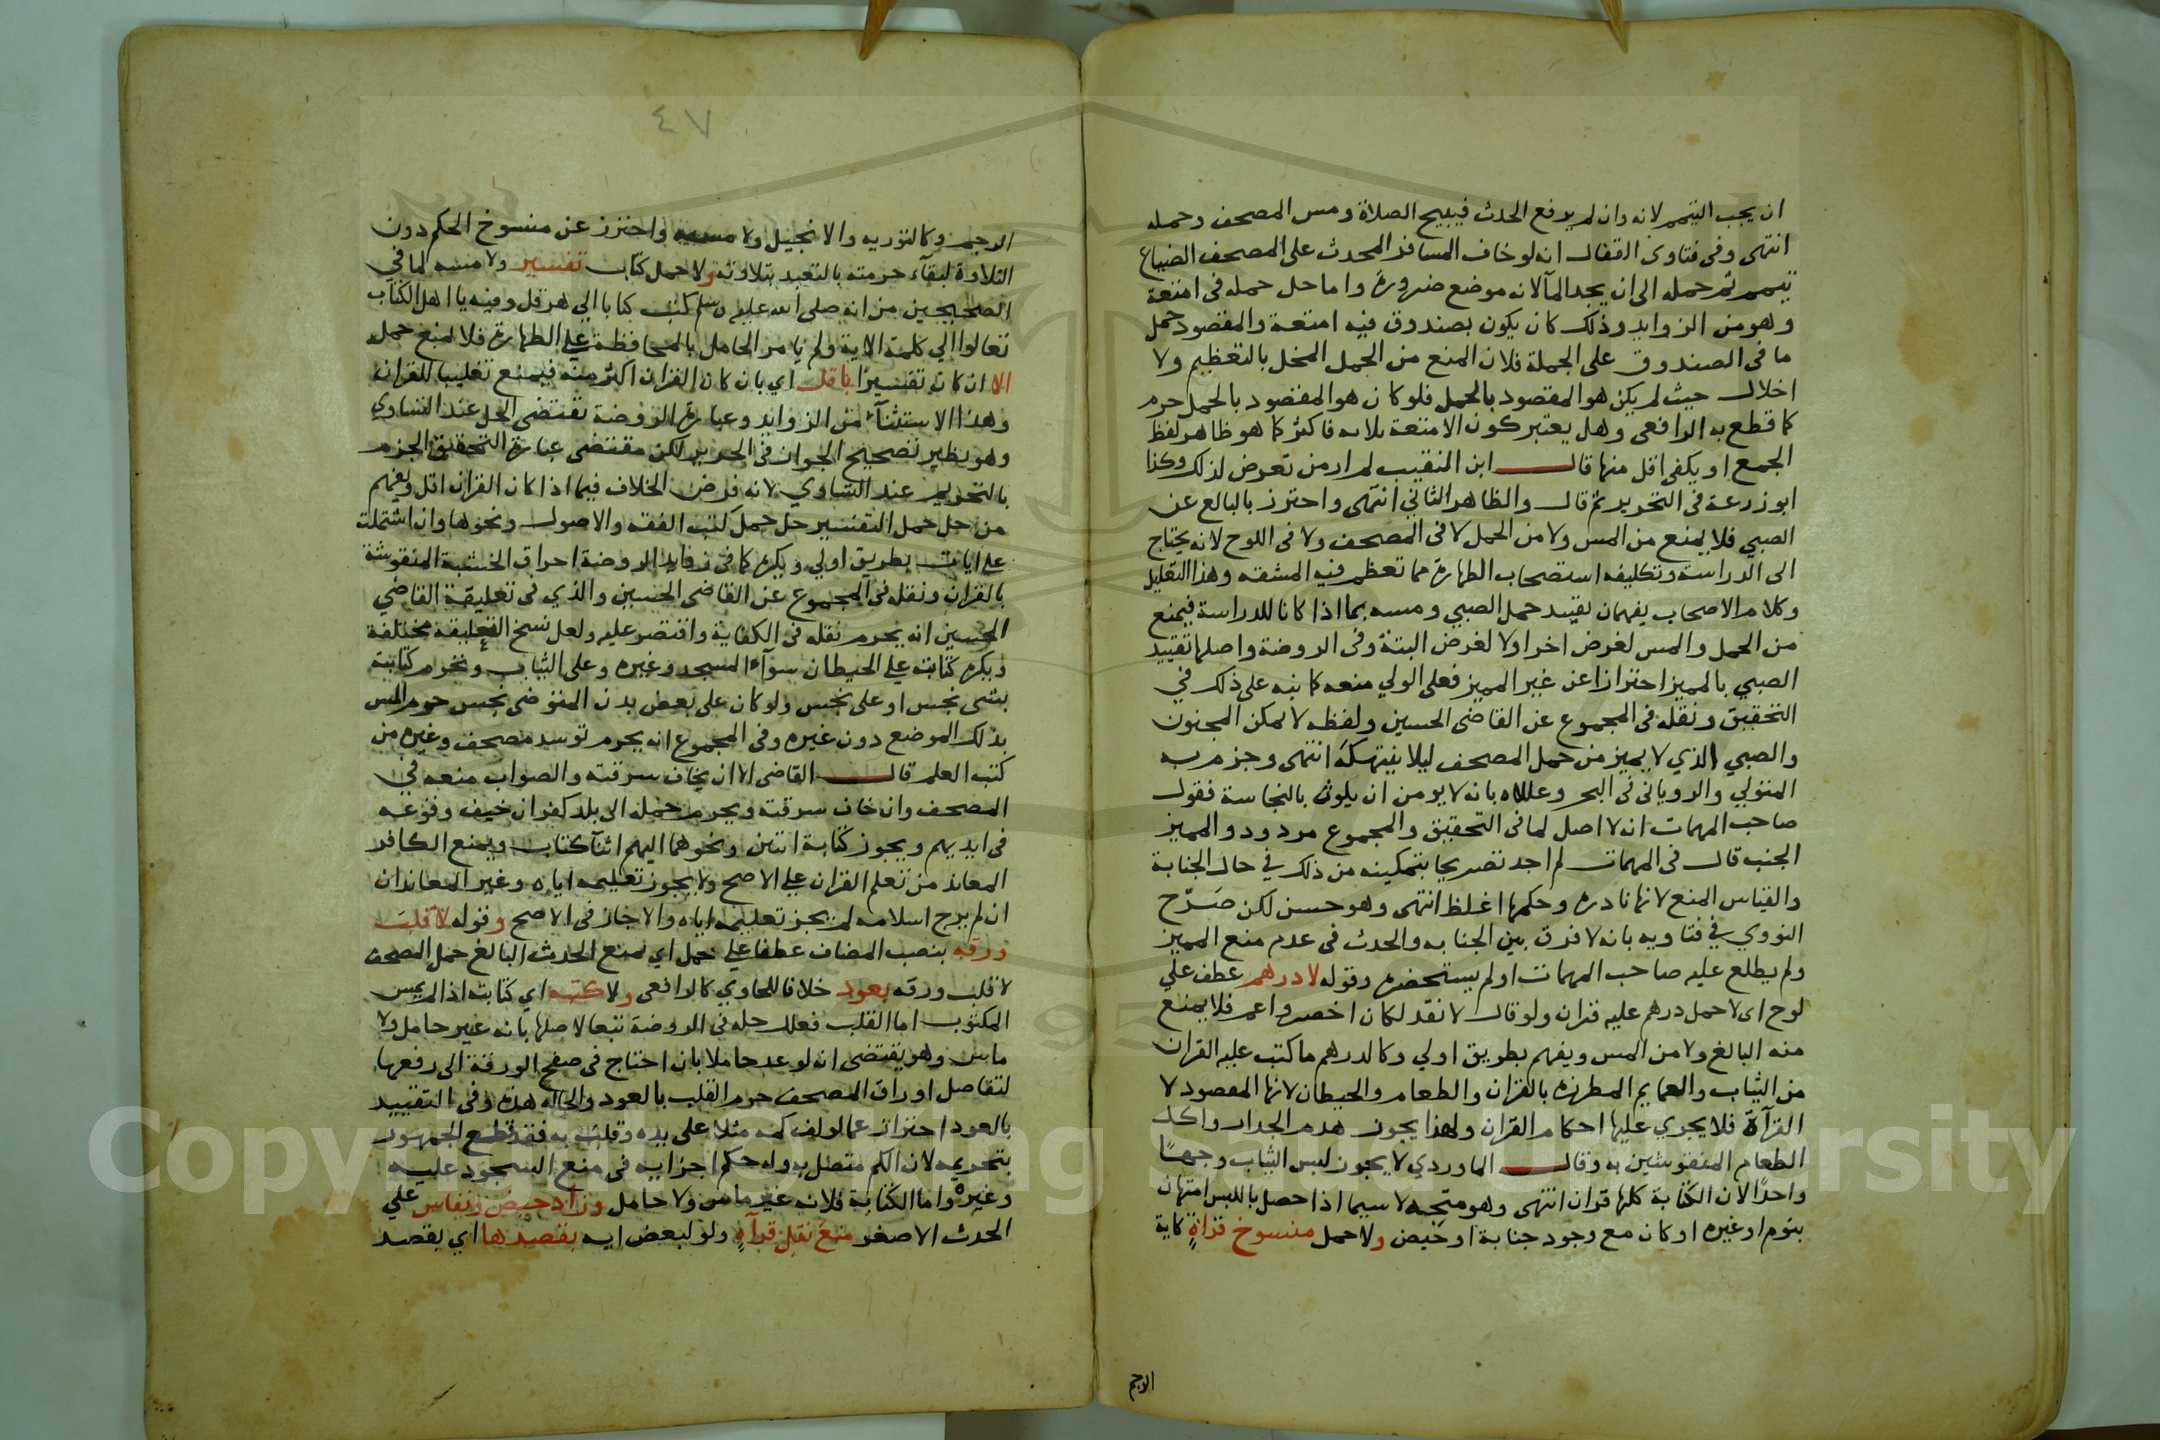 ان يجب التيمم لانه وان لم يرفع الحدث فيبيح الصلاة ومس المصحف وحمله
انتهى وفى فتاوى القفال انه لو خاف المسافر المحدث على المصحف الضياع
تيمم ثم حمله الى ان يجد المآ لانه موضع ضرورة واما حل حمله فى امتعة
وهو من الزوايد وذلك كان يكون بصندوق فيه امتعة والمقصود حمل
ما فى الصندوق على الجملة فلان المنع من الحمل المخل بالتعظيم ولا
اخلال حيث لم يكن هو المقصود بالحمل فلو كان هو المقصود بالحمل حرم
كما قطع به الرافعى وهل يعتبر كون الامتعة ثلاثه فاكثر كما هو ظاهر لفظ
الجمع او يكفى اقل منها قال ابن النقيب لم ار من تعرض لذلك وكذا
ابو زرعة فى التحرير ثم قال والظاهر الثاني انتهى واحترز بالبالغ عن
الصبي فلا يمنع من المس ولا من الحمل لا فى المصحف ولا فى اللوح لانه يحتاج
الى الدراسة وتكليفه استصحاب الطهارة مما تعظم فيه المشقه وهذا التعليل
وكلام الاصحاب يفهمان تقييد حمل الصبي ومسه بما اذا كانا للدراسة فيمنع
من الحمل والمس لغرض اخر او لا لغرض البتة وفى الروضة واصلها تقييد
الصبي بالمميز احترازا عن غير المميز فعلى الولي منعه كما نبه على ذلك في
التحقيق ونقله فى المجموع عن القاضى الحسين ولفظه لا يمكن المجنون
والصبي الذي لا يميز من حمل المصحف ليلا ينتهكه انتهى وجزم به
المتولي والروياني فى البحر وعللاه بانه لا يومن ان يلوث بالنجاسة فقول
صاحب المهمات انه لا اصل لما فى التحقيق والمجموع مردود والمميز
الجنب قال فى المهمات لم اجد تصريحا بتمكينه من ذلك في حال الجنابة
والقياس المنع لانها نادرة وحكمها اغلظ انتهى وهو حسن لكن صَرّح
النووي في فتاويه بانه لا فرق بين الجنابه والحدث فى عدم منع المميز
ولم يطلع عليه صاحب المهمات او لم يستحضره وقوله لا درهم عطف علي
لوح اى لا حمل درهم عليه قران ولو قال لا نقد لكان اخصر واعم فلا يمنع
منه البالغ ولا من المس ويفهم بطريق اولي وكالدرهم ما كتب عليه القران
من الثياب والعمايم المطرزه بالقران والطعام والحيطان لانها المقصود لا
القرآة فلا يجري عليها احكام القران ولهذا يجوز هدم الجدار واكل
الطعام المنقوشين به وقال الماوردي لا يجوز لبس الثياب وجهًا
واحدًا لان الكتابة كلها قران انتهى وهو متجه لا سيما اذا حصل باللبس امتهان
بنوم او غيره او كان مع وجود جنابة او حيض ولا حمل منسوخ قراةٍ كاية
الرجم
الرجم وكالتوريه والانجيل ولا مسه واحترز عن منسوخ الحكم دون
التلاوة لبقآء حرمته بالتعبد بتلاوته ولا حمل كتاب تفسير ولا مسه لما في
الصحيحين من انه صلى الله عليه وسلم كتب كتابا الي هرقل وفيه يا اهل الكتاب
تعالوا الي كلمة الاية ولم يامر الحامل بالمحافظة على الطهارة فلا يمنع حمله
الا ان كان تفسيرًا باقل اي بان كان القران اكثر منه فيمنع تغليبا للقران
وهذا الاستثنآء من الزوايد وعبارة الروضة تقتضى الحل عند التساوي
وهو نظير تصحيح الجواز فى الحرير لكن مقتضى عبارة التحقيق الجزم
بالتحريم عند التساوي لانه فرض الخلاف فيما اذا كان القران اقل ويفهم
من حل حمل التفسير حل حمل كتب الفقه والاصول ونحوها وان اشتملت
على ايات بطريق اولي ويكره كما فى زوايد الروضة احراق الخشبة المنقوشة
بالقران ونقله فى المجموع عن القاضى الحسين والذي فى تعليقة القاضي
الحسين انه يحرم نقله فى الكفاية واقتصر عليه ولعل نسخ التعليقة مختلفة
ويكره كتابته على الحيطان سوآء المسجد وغيره وعلى الثياب ويحرم كتابته
بشى نجس او على نجس ولو كان على بعض بدن المتوضى نجس حرم المس
بذلك الموضع دون غيره وفى المجموع انه يحرم توسد مصحف وغيره من
كتب العلم قال القاضى الا ان يخاف سرقته والصواب منعه في
المصحف وان خاف سرقته ويحرم حمله الى بلد كفر ان خيف وقوعه
فى ايديهم ويجوز كتابة اثنين ونحوهما اليهم اثنآ كتاب ويمنع الكافر
المعاند من تعلم القران على الاصح ولا يجوز تعليمه اياه وغير المعاند ان
ان لم يرج اسلامه لم يجز تعليمه اياه والا جاز فى الاصح وقوله لا قلبَ
ورقه بنصب المضاف عطفا علي حمل اي يمنع الحدث البالغ حمل المصحف
لا قلب ورقه بعود خلافا للحاوي كالرافعى ولا كتبه اي كتابته اذا لم يمس
المكتوب اما القلب فعلل حله في الروضة تبعا لاصلها بانه غير حامل ولا
ماس وهو يقتضى انه لو عد حاملا بان احتاج فى صفح الورقة الى رفعها
لتفاصل اوراق المصحف حرم القلب بالعود والحالة هذه وفى التقييد
بالعود احتراز عما لو لف كمه مثلا على يده وقلب به فقد قطع الجمهور
بتحريمه لان الكم متصل به وله حكم اجزايه فى منع السجود عليه
وغيره واما الكتابة فلانه غير ماس ولا حامل وزاد حيض ونفاس علي
الحدث الاصغر منعَ نقل قرآةٍ ولو لبعض ايه بقصدها اي بقصد
٤٧
Copyright © King Saud University